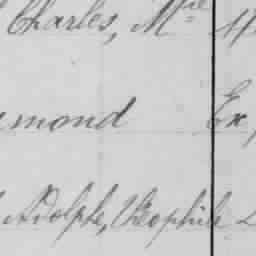 Charles, Mie
mond Ex
Adolphe, Théophile